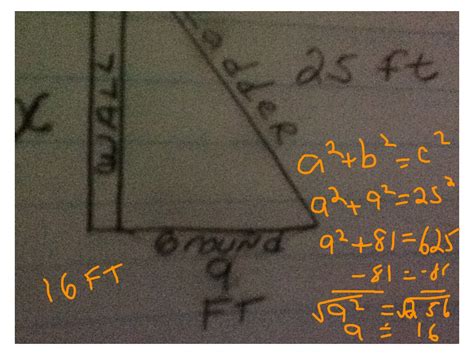 Ladder
25 ft
WALL
x
Ground
9
FT
16 FT
a²+b²=c²
a²+9²=25²
a²+81=625
-81=-81
√a² = √256
a = 16